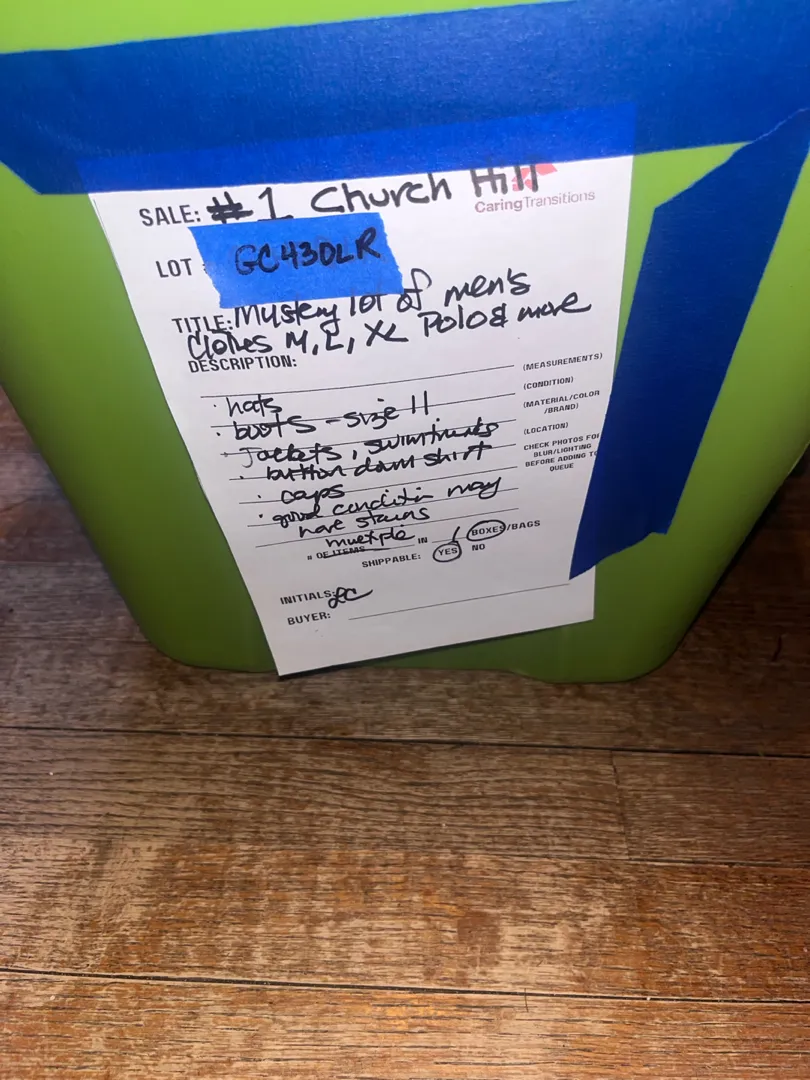 SALE: #1 Church Hill
CaringTransitions
LOT : GC430LR
TITLE: Mystery lot of men's
Clothes M, L, XL Polo & more
DESCRIPTION:
(MEASUREMENTS)
· hats
(CONDITION)
· boots - size 11
(MATERIAL/COLOR
/BRAND)
· Jackets, swimtrunks
(LOCATION)
· button down shirt
CHECK PHOTOS FOR
BLUR/LIGHTING
BEFORE ADDING TO
QUEUE
· caps
· good condition may
have stains
# OF ITEMS multiple IN 1 BOXES/BAGS
SHIPPABLE: YES NO
INITIALS: LC
BUYER: